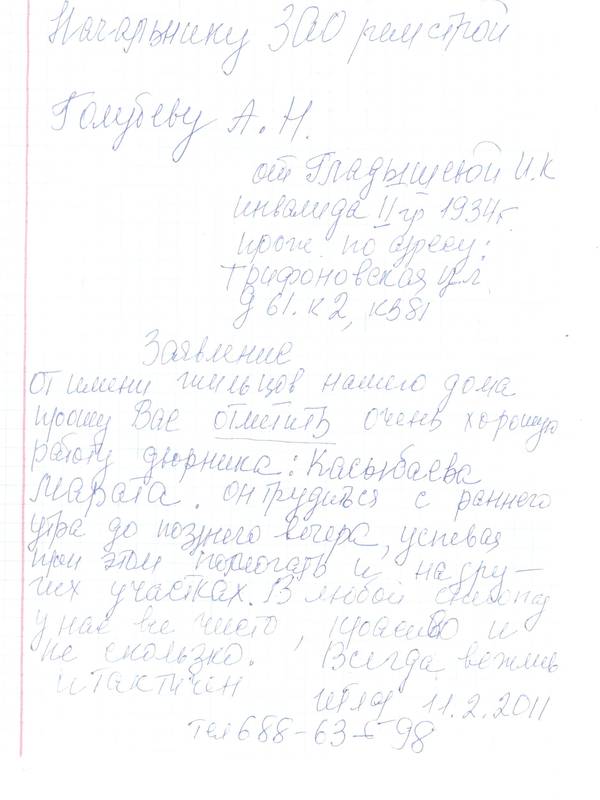 Начальнику ЗАО ремстрой
Голубеву А.Н.
от Гладышевой И.К
инвалида II гр 1934г.
прож. по адресу:
Трифоновская ул.
д 61. к 2, кв81
Заявление
От имени жильцов нашего дома
прошу Вас отметить очень хорошую
работу дворника: Касымбаева
Марата. он трудится с раннего
утра до позднего вечера, успевая
при этом помогать и на дру-
гих участках. В любой снегопад
у нас все чисто, красиво и
не скользко. Всегда вежлив
и тактичен
11.2.2011
тел 688-63-98